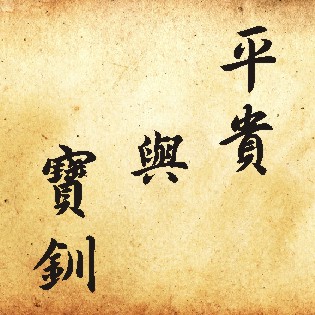 平貴
與
寶釧